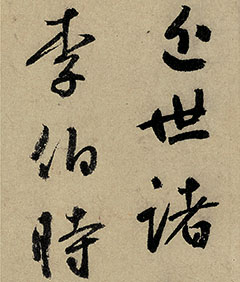 近世諸
李伯時